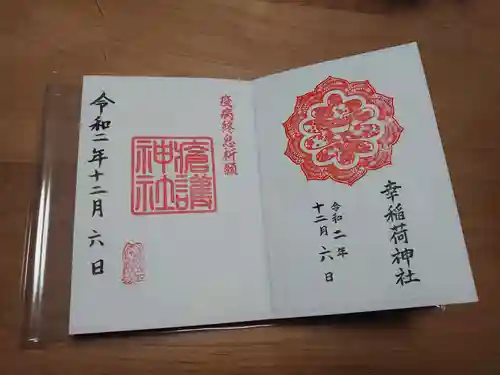 幸稲荷神社
令和二年
十二月六日
疫病終息祈願
神社
令和二年十二月六日